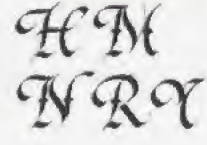 H M
N R Y